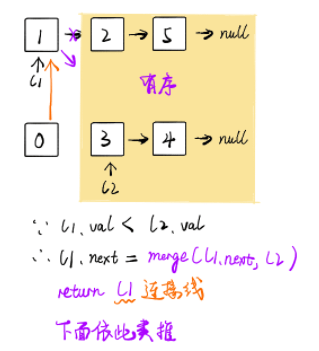 1 → 2 → 5 → null
↑
l1
有序
0 3 → 4 → null
↑
l2
∵ l1.val < l2.val
∴ l1.next = merge(l1.next, l2)
return l1 连接线
下面依此类推